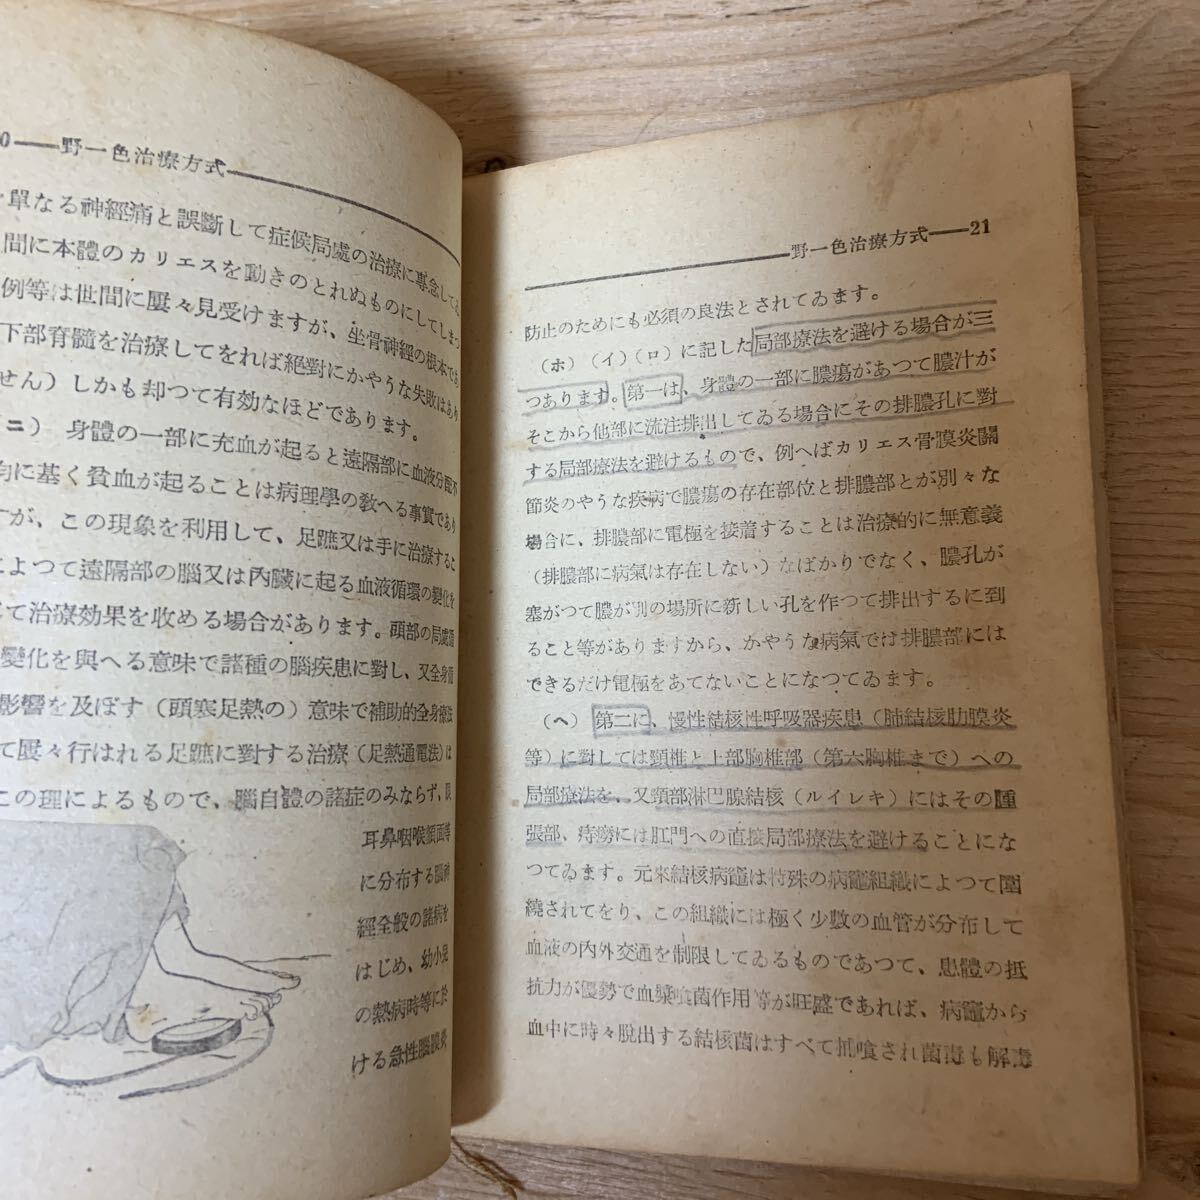 0——野一色治療方式
單なる神經痛と誤斷して症候局處の治療に專念して
間に本體のカリエスを動きのとれぬものにしてしまつ
例等は世間に屢々見受けますが、坐骨神經の根本であ
下部脊髓を治療してをれば絕對にかやうな失敗はあり
せん）しかも却つて有効なほどであります。
ニ） 身體の一部に充血が起ると遠隔部に血液分配不
均に基く貧血が起ることは病理學の敎へる事實であり
すが、この現象を利用して、足蹠又は手に治療するこ
によつて遠隔部の腦又は內臟に起る血液循環の變化を
て治療効果を收める場合があります。頭部の局處
變化を與へる意味で諸種の腦疾患に對し、又全身
影響を及ぼす（頭寒足熱の）意味で補助的全身療法
て屢々行はれる足蹠に對する治療（足熱通電法）は
この理によるもので、腦自體の諸症のみならず、眼
耳鼻咽喉顏面等
に分布する腦神
經全般の諸病を
はじめ、幼小兒
の熱病時等に於
ける急性腦膜炎
野一色治療方式——21
防止のためにも必須の良法とされてゐます。
（ホ）（イ）（ロ）に記した局部療法を避ける場合が三
つあります。第一は、身體の一部に膿瘍があつて膿汁が
そこから他部に流注排出してゐる場合にその排膿孔に對
する局部療法を避けるもので、例へばカリエス骨膜炎關
節炎のやうな疾病で膿瘍の存在部位と排膿部とが別々な
場合に、排膿部に電極を接着することは治療的に無意義
（排膿部に病氣は存在しない）なばかりでなく、膿孔が
塞がつて膿が別の場所に新しい孔を作つて排出するに到
ること等がありますから、かやうな病氣では排膿部には
できるだけ電極をあてないことになつてゐます。
（ヘ）第二に、慢性結核性呼吸器疾患（肺結核肋膜炎
等）に對しては頸椎と上部胸椎部（第六胸椎まで）への
局部療法を、又頸部淋巴腺結核（ルイレキ）にはその腫
張部、痔癆には肛門への直接局部療法を避けることにな
つてゐます。元來結核病竈は特殊の病竈組織によつて圍
繞されてをり、この組織には極く少數の血管が分布して
血液の內外交通を制限してゐるものであつて、患體の抵
抗力が優勢で血漿喰菌作用等が旺盛であれば、病竈から
血中に時々脫出する結核菌はすべて捕喰され菌毒も解毒